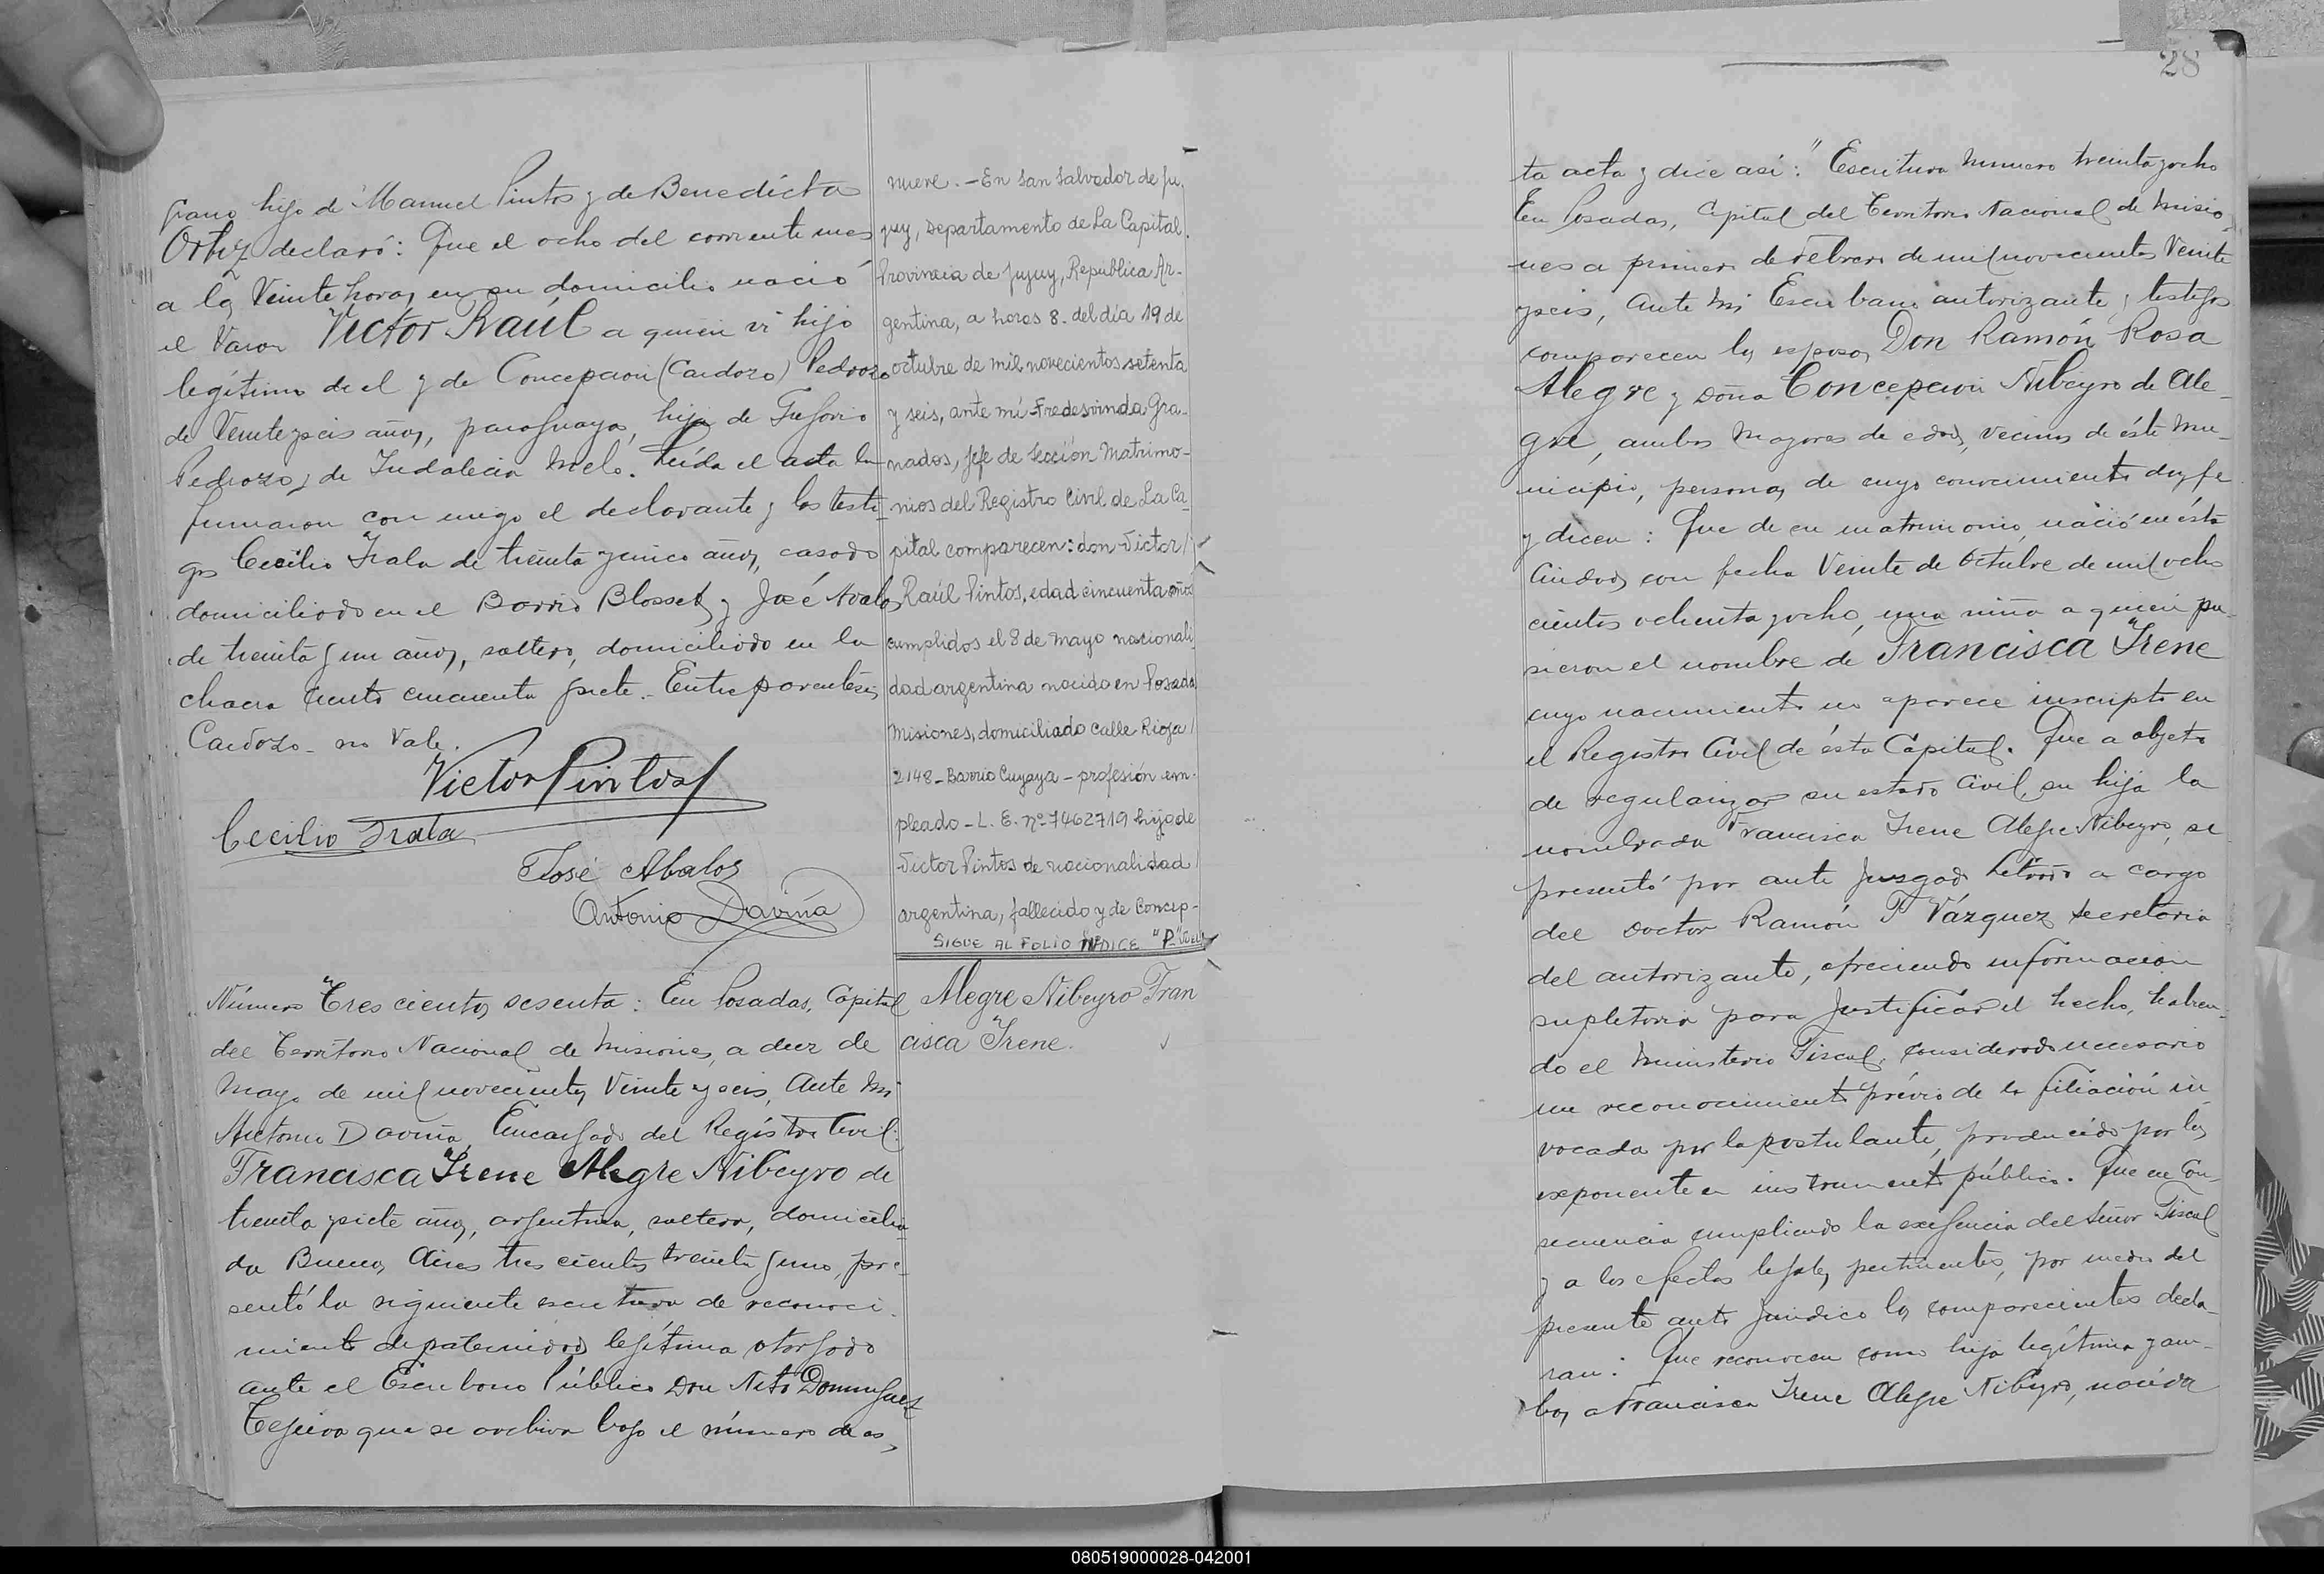 grano hijo de Manuel Pintos y de Benedicta
Ortiz declaró: Que el ocho del corriente mes
a las Veinte horas, en su domicilio nació
el Varon Victor Raúl a quien vi hijo
legítimo de el y de Concepcion (Cardozo) Pedrozo
de Veinteyseis años, paraguaya, hija de
Pedrozo y de Indalecia Melo. Leída el acta la
firmaron con migo el declarante y los testi-
gos Cecilio Irala de treinta y cinco años, casado
domiciliado en el Barrio Blosset y José Avalos
de treinta y un años, soltero, domiciliado en la
chacra ciento cincuenta y siete. Entre parentesis
Cardozo - no Vale.
Victor Pintos
Cecilio Irala
José Abalos
Antonio Daviña
nueve. - En San Salvador de Ju-
juy, Departamento de La Capital.
Provincia de Jujuy, República Ar-
gentina, a horas 8. del día 19 de
octubre de mil novecientos setenta
y seis, ante mí Fredesvinda Gra-
nados, Jefe de Sección Matrimo-
nios del Registro Civil de La Ca-
pital comparecen: don Victor /
Raúl Pintos, edad cincuenta años
cumplidos el 8 de mayo nacionali-
dad argentina nacido en Posadas
Misiones, domiciliado calle Rioja /
2148 - Barrio Cuyaya - profesión em-
pleado - L. E. nº 7462719 hijo de
Victor Pintos de nacionalidad /
argentina, fallecido y de Concep-
SIGUE AL FOLIO INDICE "P"
Número Tres cientos sesenta: En Posadas, Capital
del Territorio Nacional de Misiones, a diez de
Mayo de mil novecientos Veinte y seis, Ante Mi
Antonio Daviña, Encargado del Registro Civil:
Francisca Irene Alegre Nibeyro de
treinta y siete años, argentina, soltera, domicilia-
da Buenos Aires tres cientos treinta y uno, pre-
sentó la siguiente escritura de reconoci-
miento de paternidad legítima otorgado
ante el Escribano Público Don Domínguez
que se archiva bajo el número de es-
Alegre Nibeyro Fran
cisca Irene.
28
ta acta y dice así: "Escritura Número treinta y ocho
En Posadas, Capital del Territorio Nacional de Misio-
nes a primero de Febrero de mil novecientos Veinte
y seis, Ante Mi Escribano autorizante y testigos
comparecen los esposos Don Ramón Rosa
Alegre y Doña Concepcion Nibeyro de Ale-
gre, ambos Mayores de edad, vecinos de éste Mu-
nicipio, personas de cuyo conocimiento doy fe
y dicen: Que de su matrimonio, nació en ésta
Ciudad, con fecha Veinte de Octubre de mil ocho
cientos ochenta y ocho, una niña a quien pu-
sieron el nombre de Francisca Irene
cuyo nacimiento no aparece inscripto en
el Registro Civil de ésta Capital. Que a objeto
de regularizar su estado Civil, su hija la
nombrada Francisca Irene Alegre Nibeyro, se
presentó por ante Juzgado Letrado a cargo
del Doctor Ramón P. Vázquez Secretaria
del autorizante, ofreciendo información
supletoria para Justificar el hecho, habien-
do el Ministerio Fiscal, considerado necesario
un reconocimiento prévio de la filiación in-
vocada por la postulante, producido por los
exponentes en instrumento público. Que en Con-
secuencia cumpliendo la exigencia del Señor Fiscal
y a los efectos legales pertinentes, por medio del
presente acto jurídico los comparecientes decla-
ran: Que reconocen como hija legítima y am-
bos a Francisca Irene Alegre Nibeyro, nacida
080519000028-042001